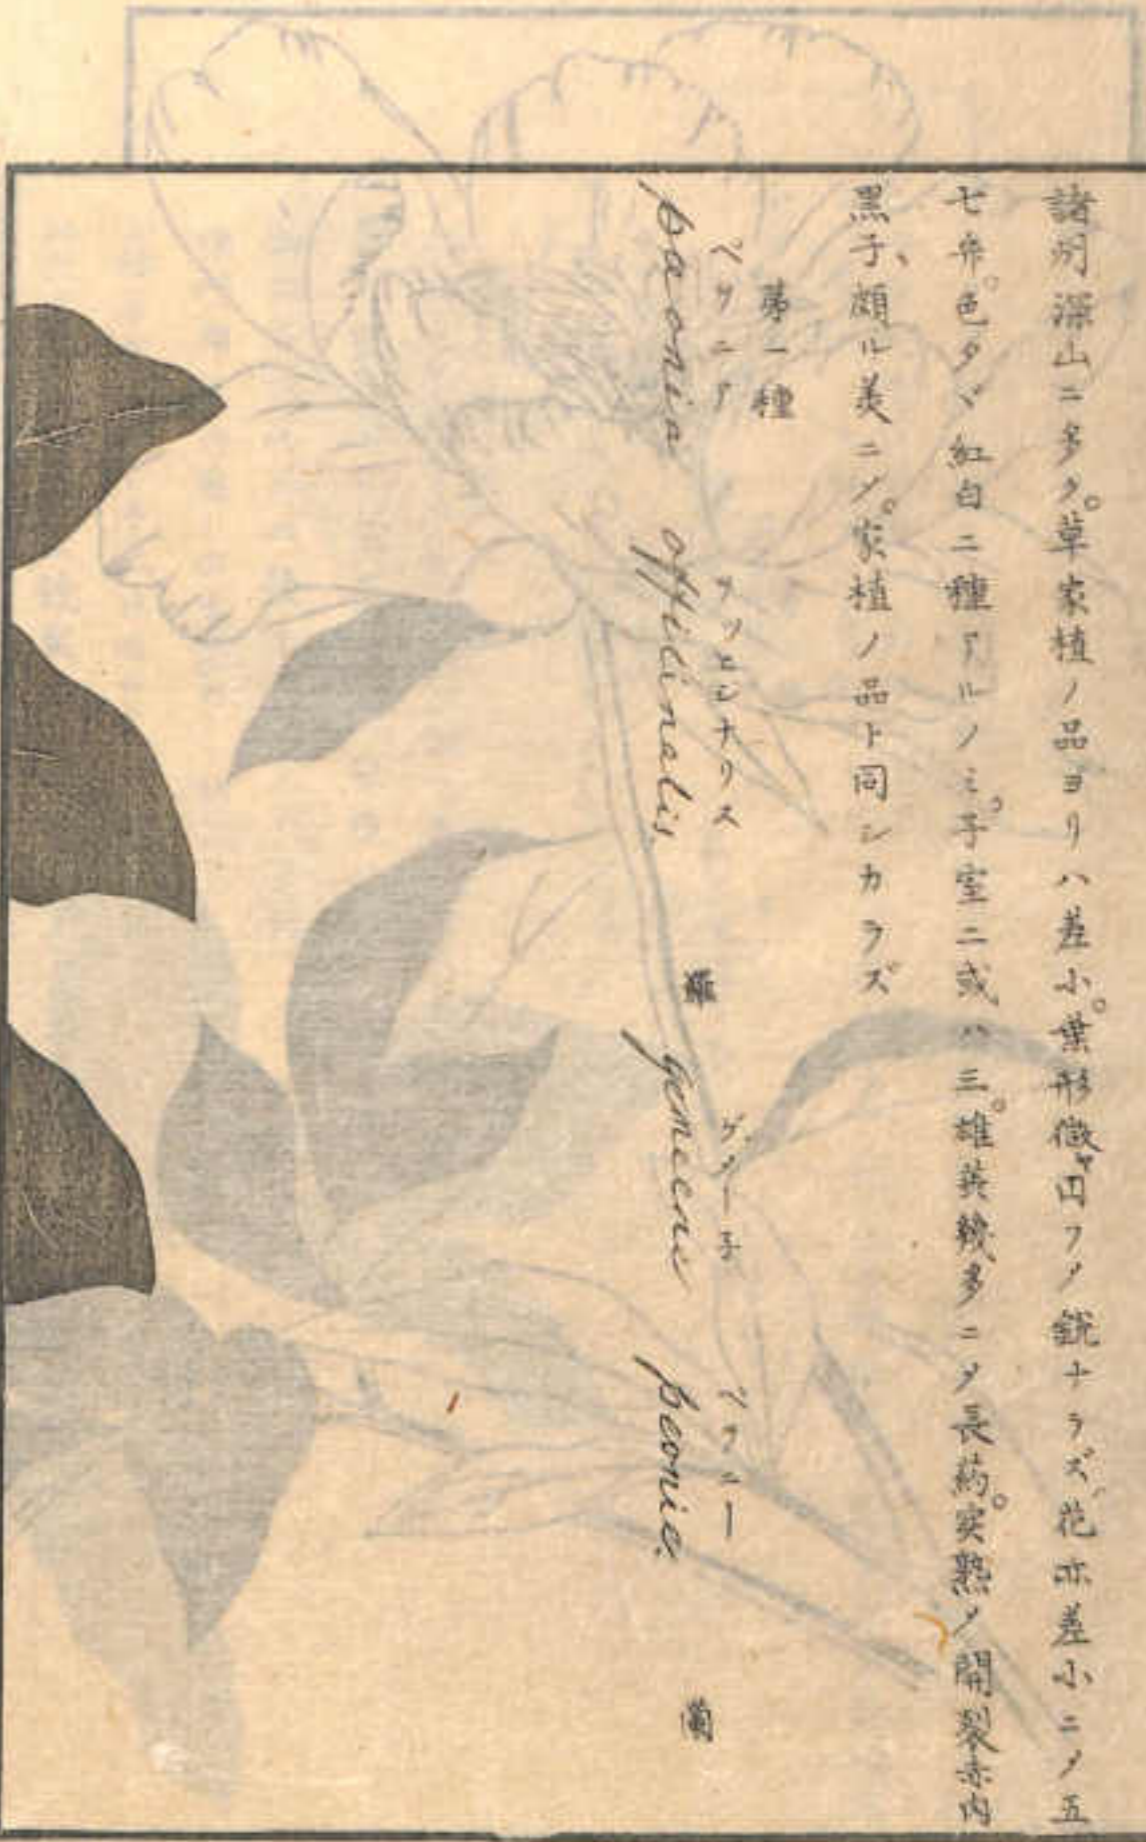 諸州深山ニ多ク。草家植ノ品ヨリハ差小。葉形微ヤ円フ〆鋭ナラズ。花亦差小ニ〆五
七弁。色タヾ紅白ニ種アルノミ。子室二或ハ三。雄蕋幾多ニ〆長葯。実熟〆開裂赤肉
黒子、頗ル美ニ〆。家植ノ品ト同シカラズ
第一種
ペヲニア オツヒシナリス ゲメーネ ペヲニー
paeonia officinalis 羅 gemeene peonie. 蘭